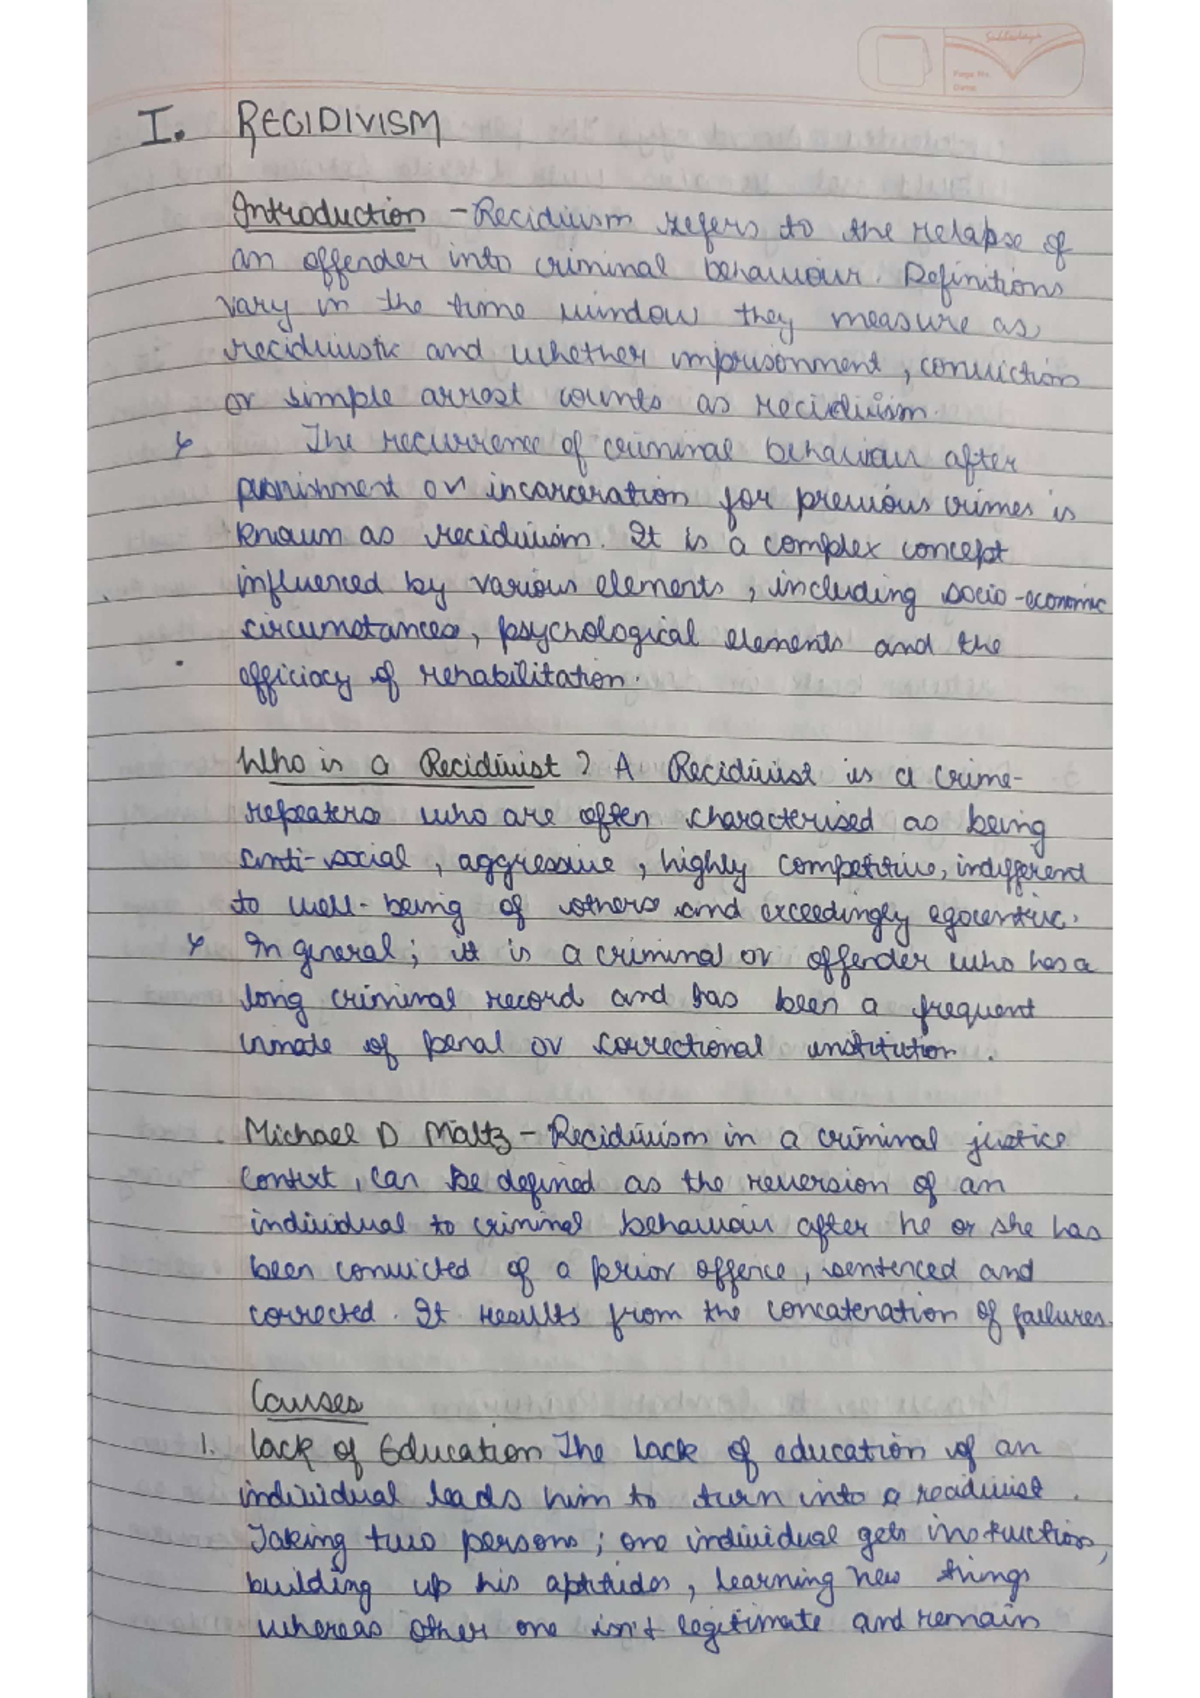 Page No.
Date
I. RECIDIVISM
Introduction - Recidivism refers to the relapse of
an offender into criminal behaviour. Definitions
vary in the time window they measure as
recidivistic and whether imprisonment, conviction
or simple arrest counts as recidivism.
The recurrence of criminal behaviour after
punishment or incarceration for previous crimes is
known as recidivism. It is a complex concept
influenced by various elements, including socio-economic
circumstances, psychological elements and the
efficiacy of rehabilitation.
Who is a Recidivist? A Recidivist is a crime-
repeaters who are often characterised as being
anti-social, aggressive, highly competitive, indifferent
to well-being of others and exceedingly egocentric.
In general; it is a criminal or offender who has a
long criminal record and has been a frequent
inmate of penal or correctional institution.
Michael D Maltz - Recidivism in a criminal justice
context, can be defined as the reversion of an
individual to criminal behaviour after he or she has
been convicted of a prior offence, sentenced and
corrected. It results from the concatenation of failures.
Causes
1. lack of Education The lack of education of an
individual leads him to turn into a recidivist.
Taking two persons; one individual gets instruction,
building up his aptitudes, learning new things
whereas other one isn't legitimate and remain